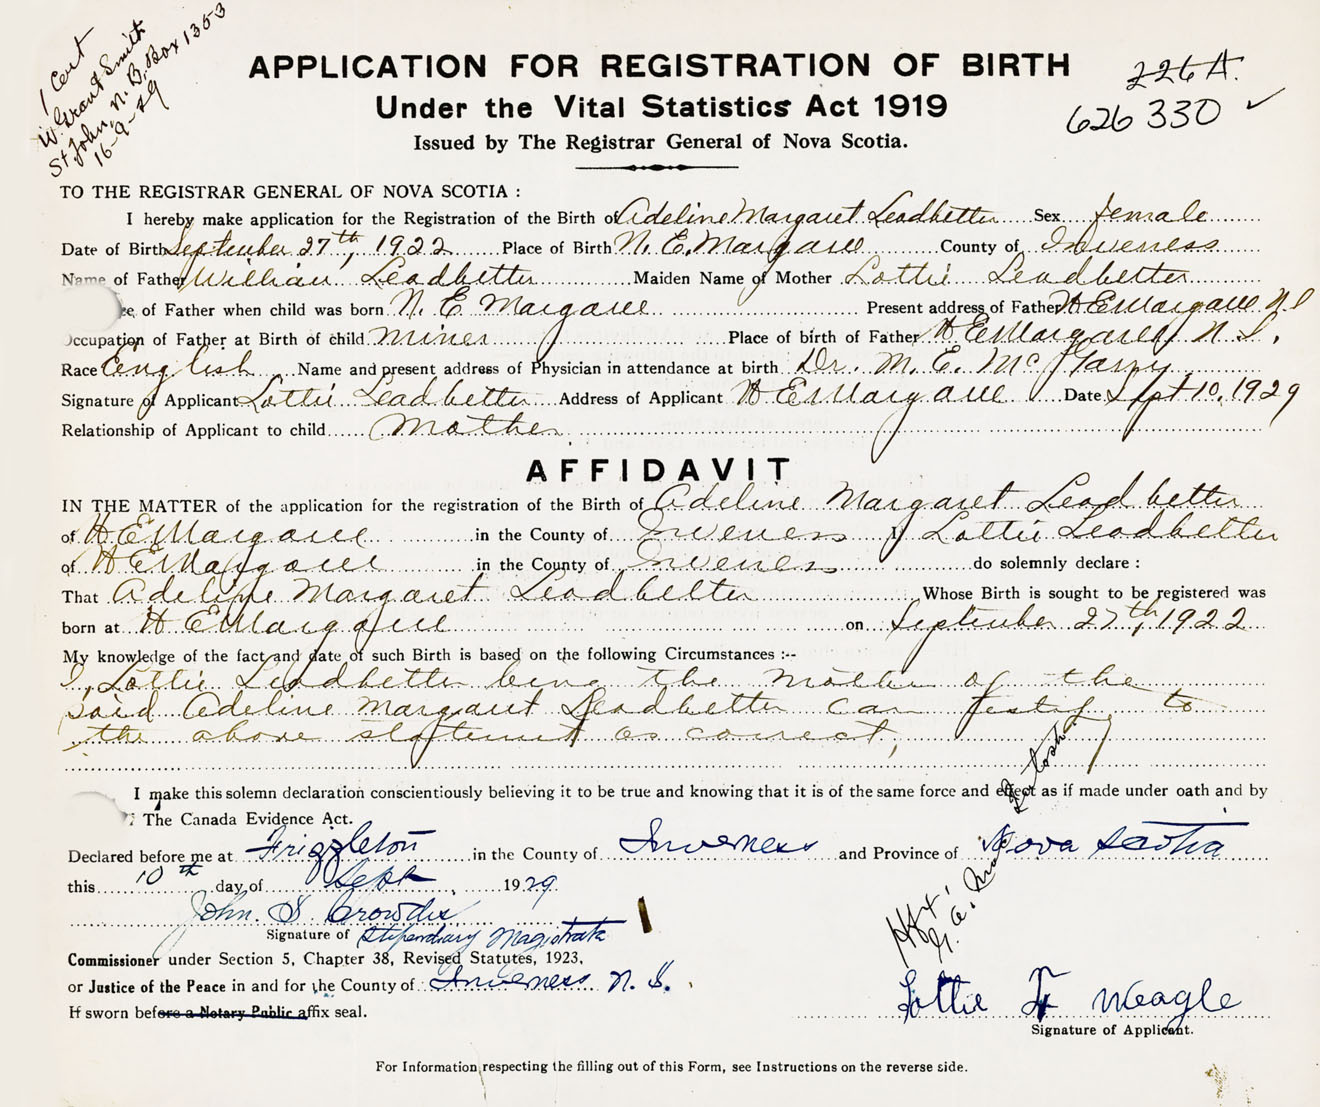 1 Cert
W. Grant Smith
St John, N. B. Box 1353
16-9-29
APPLICATION FOR REGISTRATION OF BIRTH
226 A.
Under the Vital Statistics Act 1919
626 330 ✓
Issued by The Registrar General of Nova Scotia.
TO THE REGISTRAR GENERAL OF NOVA SCOTIA :
I hereby make application for the Registration of the Birth of Adeline Margaret Leadbetter Sex female
Date of Birth September 27th, 1922 Place of Birth N. E. Margaree County of Inverness
Name of Father William Leadbetter Maiden Name of Mother Lottie Leadbetter
ce of Father when child was born N. E Margaree Present address of Father N E Margaree N S
Occupation of Father at Birth of child miner Place of birth of Father N E Margaree N. S.
Race English Name and present address of Physician in attendance at birth Dr. M. E. McGarry
Signature of Applicant Lottie Leadbetter Address of Applicant N E Margaree Date Sept 10, 1929
Relationship of Applicant to child Mother
AFFIDAVIT
IN THE MATTER of the application for the registration of the Birth of Adeline Margaret Leadbetter
of N E Margaree in the County of Inverness I, Lottie Leadbetter
of N E Margaree in the County of Inverness do solemnly declare :
That Adeline Margaret Leadbetter Whose Birth is sought to be registered was
born at N E Margaree on September 27th, 1922
My knowledge of the fact and date of such Birth is based on the following Circumstances :--
I, Lottie Leadbetter being the Mother of the
said Adeline Margaret Leadbetter can testify to
the above statement as correct,
I make this solemn declaration conscientiously believing it to be true and knowing that it is of the same force and effect as if made under oath and by
The Canada Evidence Act.
Declared before me at Frizzleton in the County of Inverness and Province of Nova Scotia
this 10th day of Sept. 1929.
John. S. Crowdis
Signature of Stipendiary Magistrate
Commissioner under Section 5, Chapter 38, Revised Statutes, 1923,
or Justice of the Peace in and for the County of Inverness N. S.
If sworn before a Notary Public affix seal.
Lottie F Weagle
Signature of Applicant.
For Information respecting the filling out of this Form, see Instructions on the reverse side.